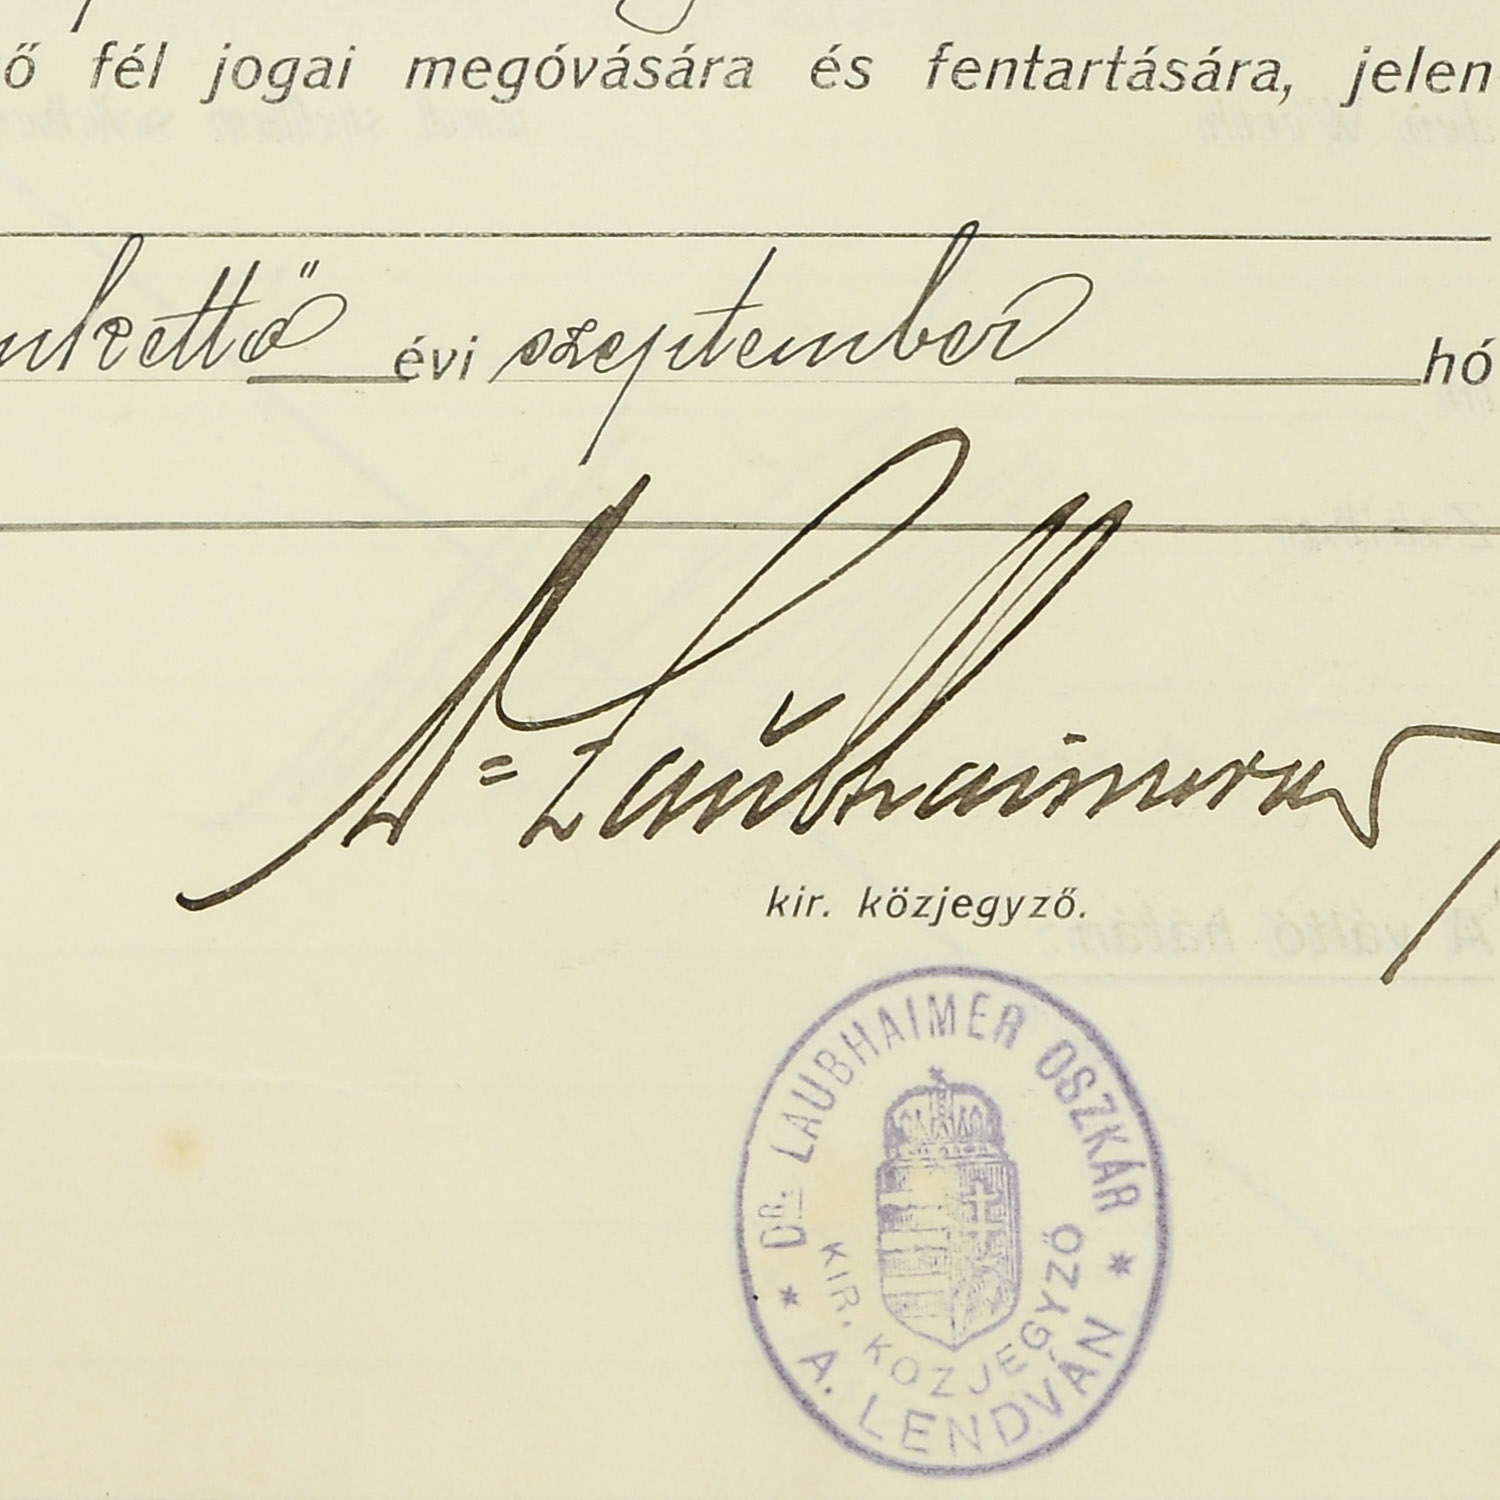 ő fél jogai megóvására és fentartására, jelen
nkettő évi szeptember hó
Dr Laubhaimer
kir. közjegyző.
DR. LAUBHAIMER OSZKÁR
KIR. KÖZJEGYZŐ
* A. LENDVÁN *